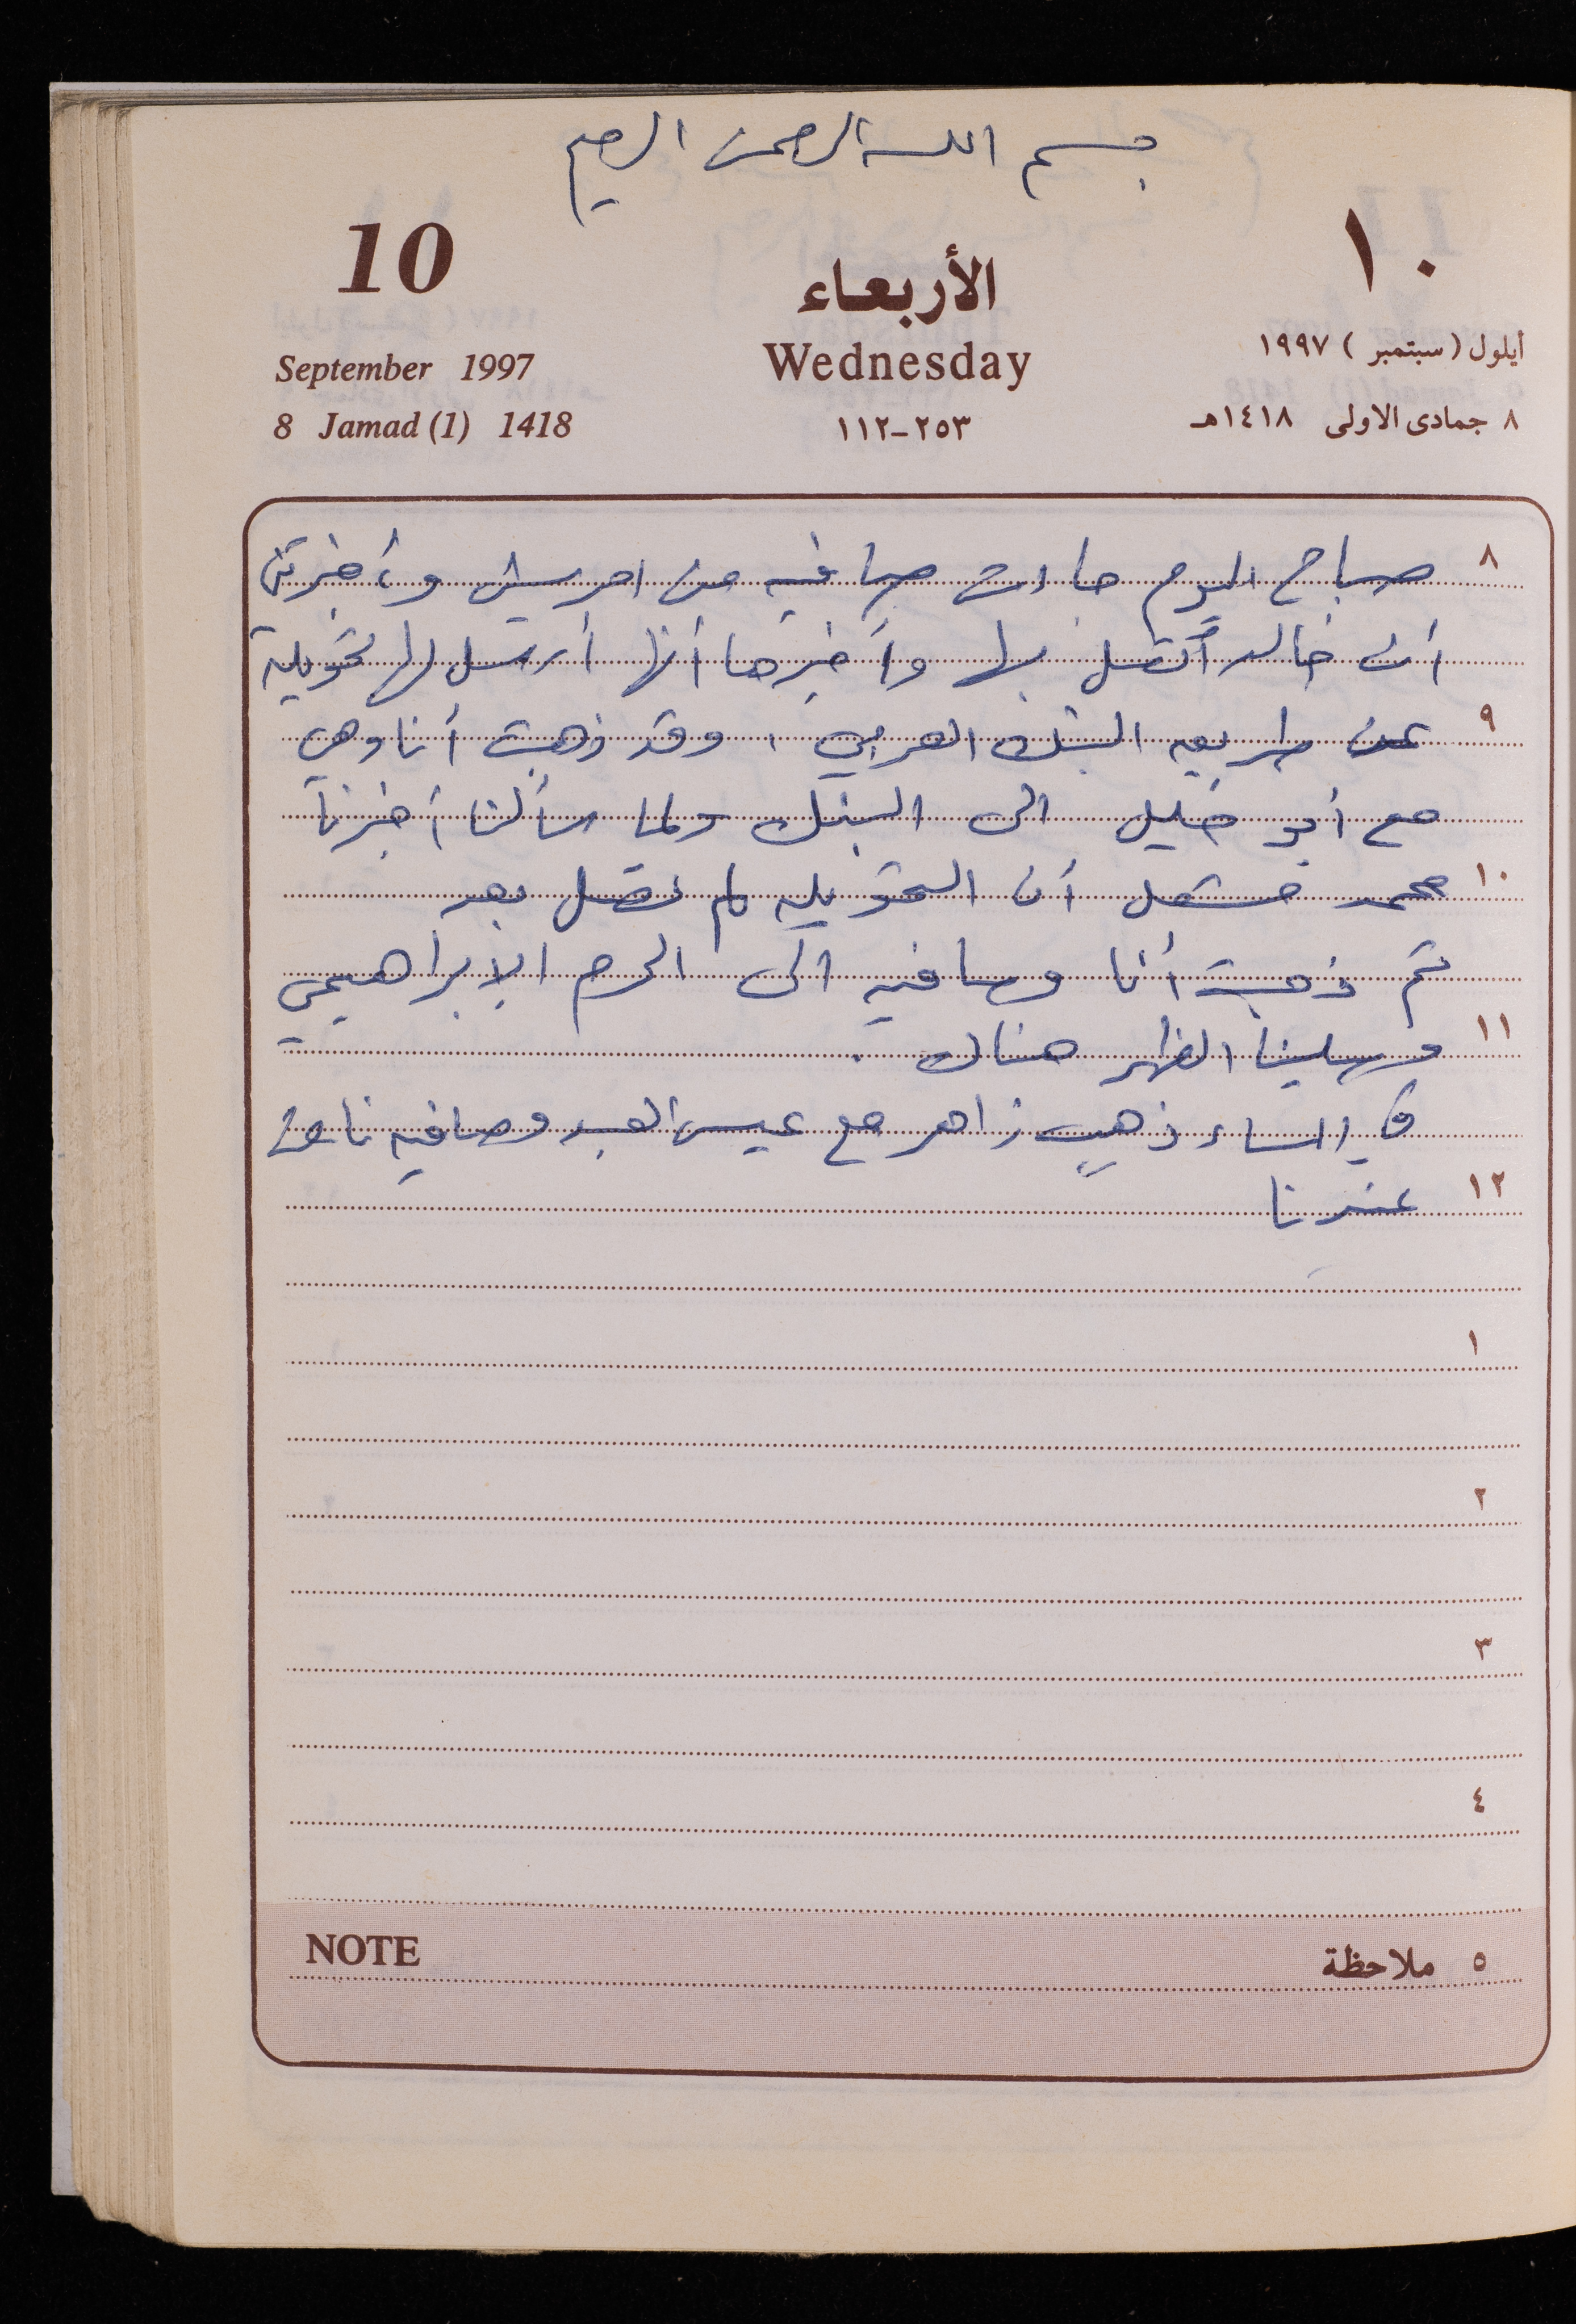 بسم الله الرحمن الرحيم
10
١٠
الأربعاء
Wednesday
٢٥٣-١١٢
September 1997
8 Jamad (1) 1418
أيلول (سبتمبر) ١٩٩٧
٨ جمادى الاولى ١٤١٨هـ
٨ صباح اليوم جاءت صافيه من امريش وأخبرتني
أن خالد أتصل بها وأخبرها أنها أرسل لها تحويله
٩ عن طريق البنك العربي ، وقد ذهبت أنا وهي
مع أبو خليل الى البنك ولما سألنا أخبرنا
١٠ محمد أن التحويله لم تصل بعد
ثم ذهبت أنا وصافيه الى الحرم الإبراهيمي
١١ وصلينا الظهر هناك .
في المساء ذهب زاهر مع عيسى العبد وصافيه نامت
١٢ عندنا
١
٢
٣
٤
NOTE
٥ ملاحظة